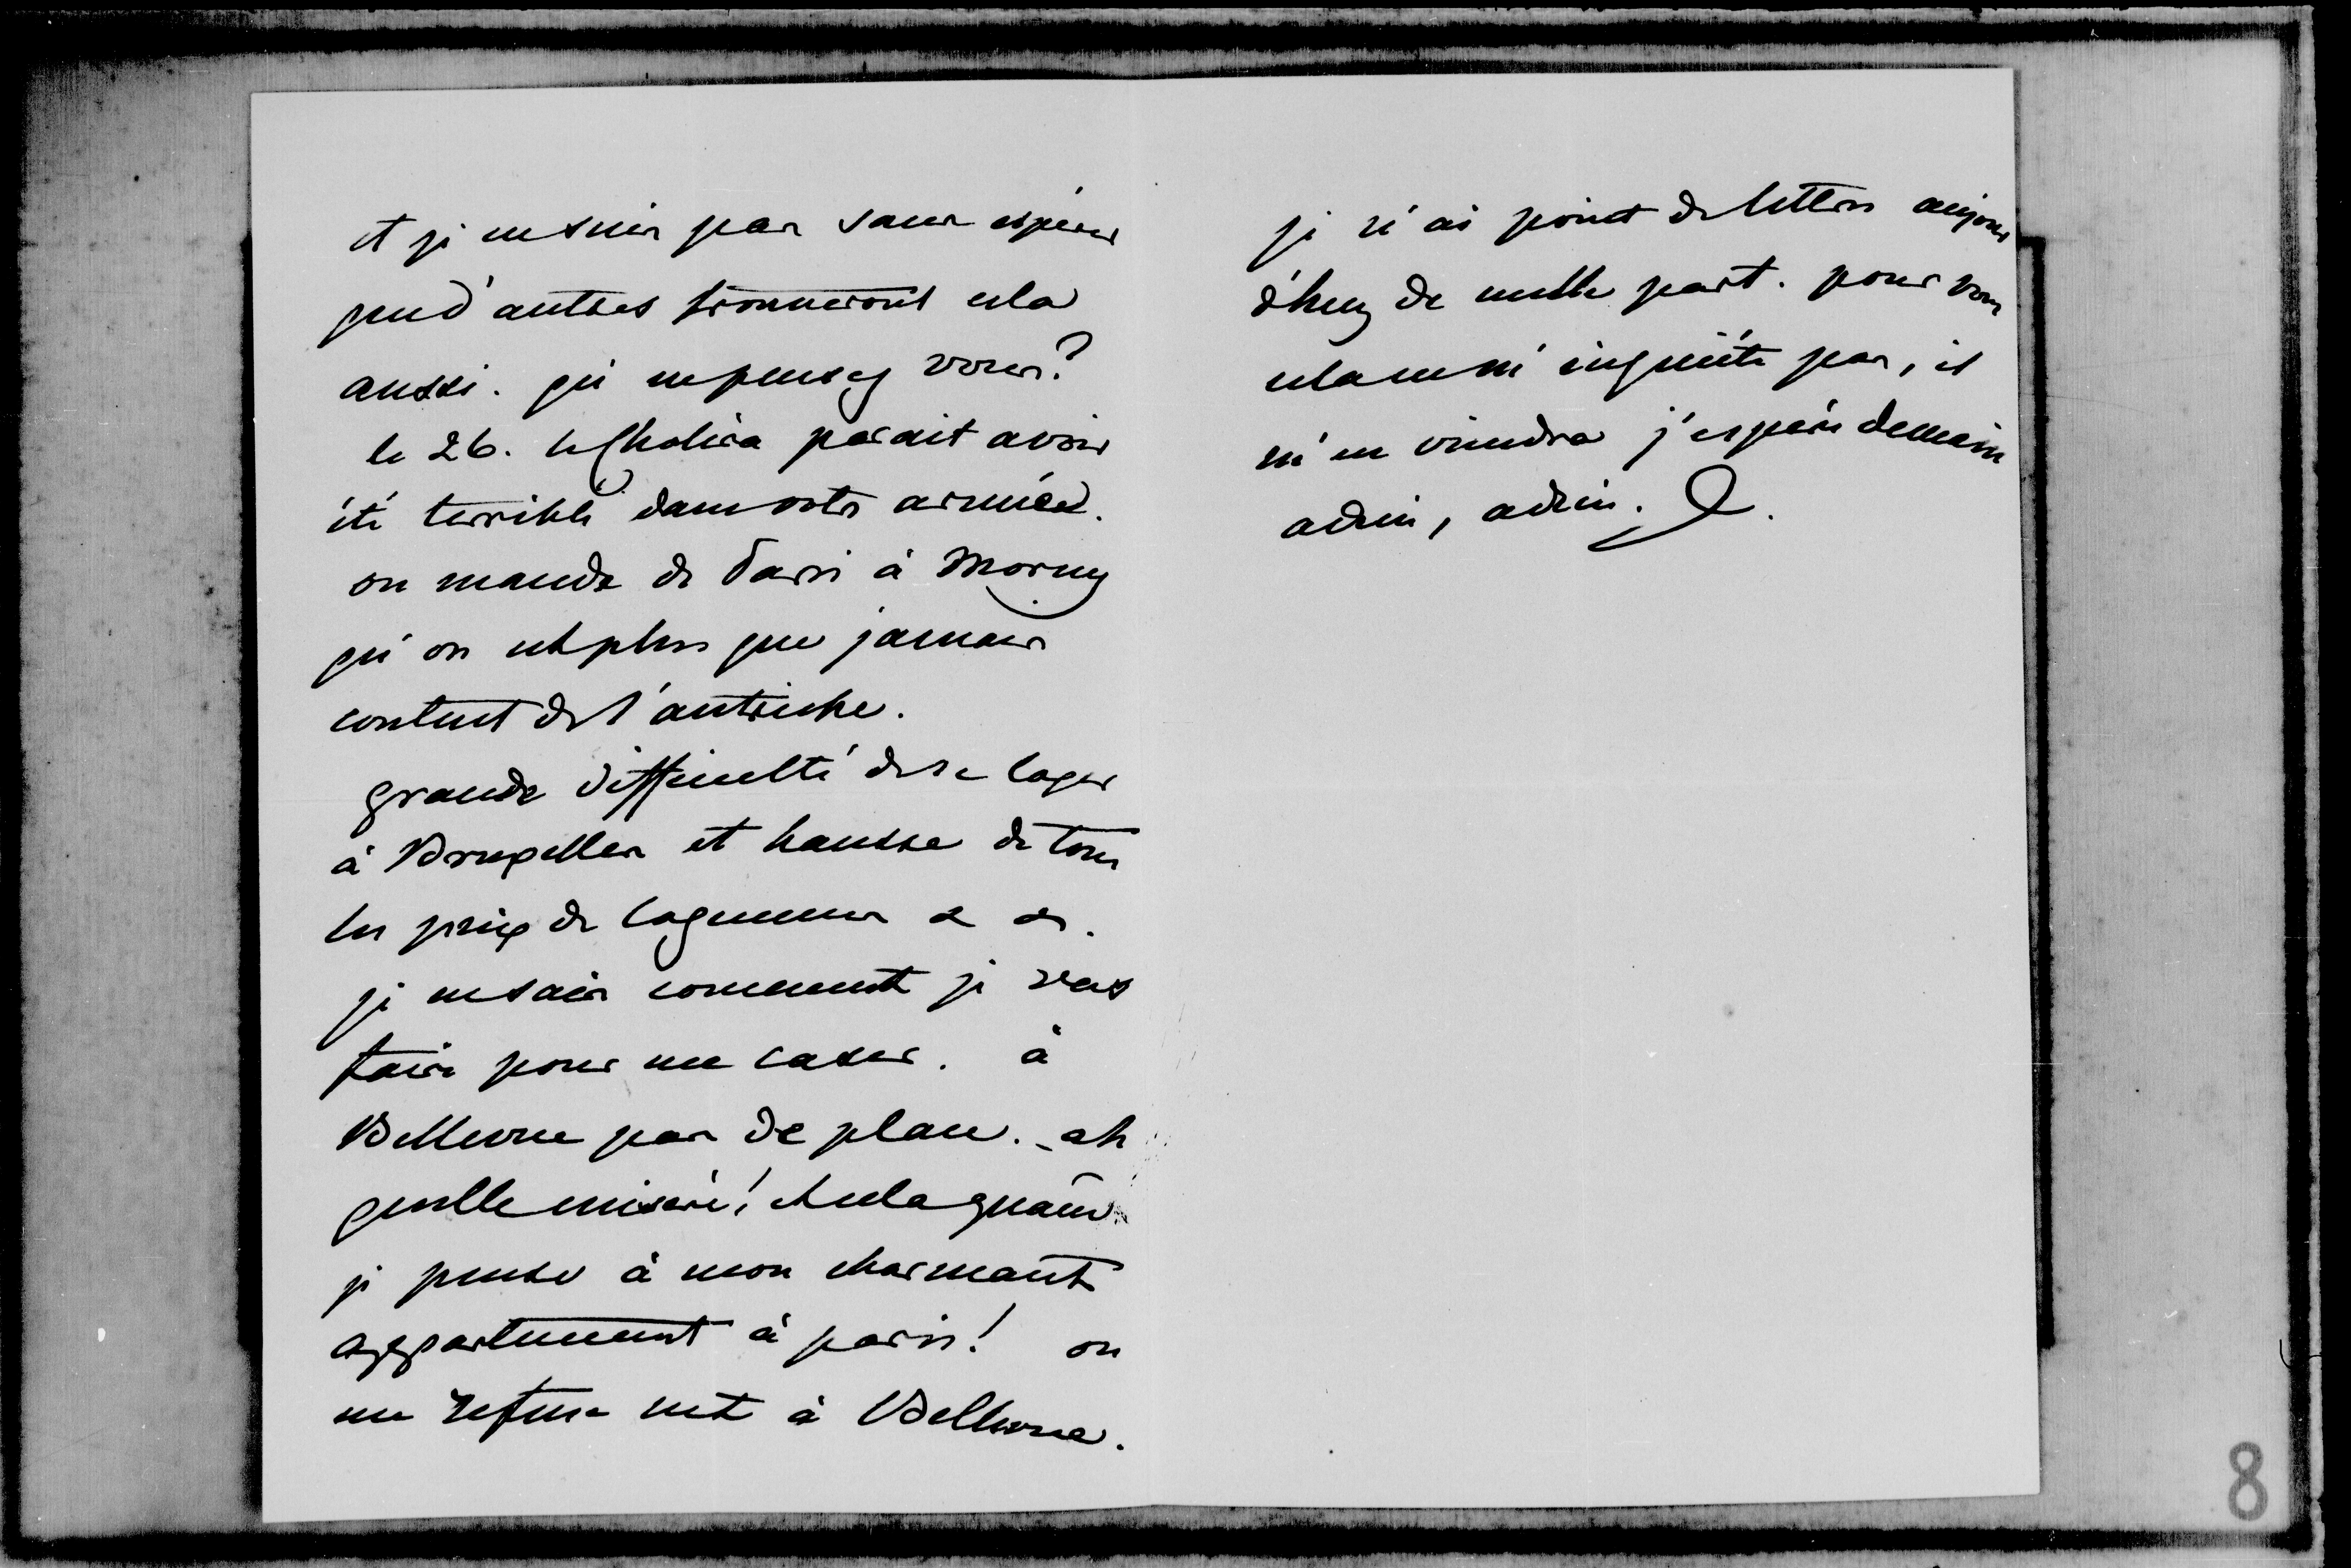 et je ne suis pas sans espérer
que d'autres trouveront cela
aussi. qu'en pensez vous?
le 26. le Choléra parait avoir
été terrible dans votre armée.
on mande de Paris à Morny
qu'on est plus que jamais
content de l'autriche.
grande difficulté de se loger
à Bruxelles et hausse de tous
les prix de logemens & &.
je ne sais comment je vais
faire pour me caser. à
Bellevue pas de place. - ah
quelle misère! et cela quand
je pense à mon charmant
appartement à paris! on
me refuse net à Bellevue.
je n'ai point de lettres aujour
d'huy de nulle part. pour vous
cela ne m'inquiète pas, il
m'en viendra j'espère demain
adieu, adieu.
8